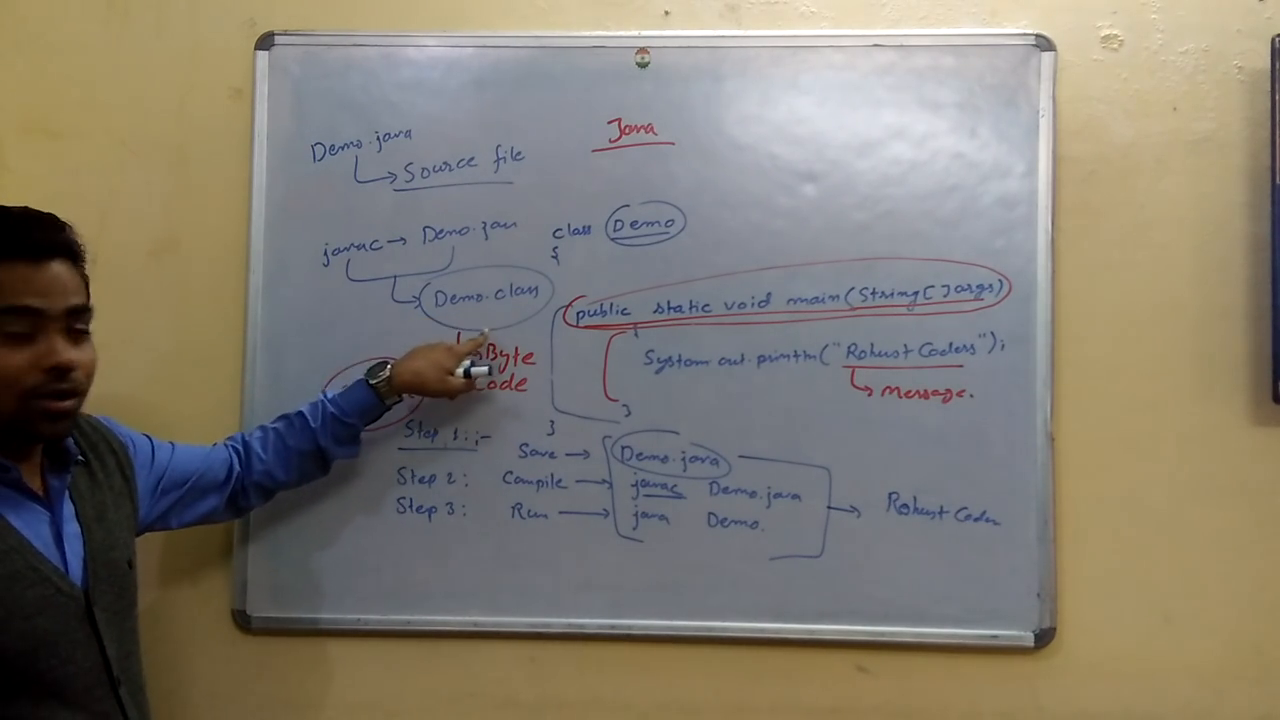 Java
Demo.java
Source file
javac → Demo.java
Demo.class
Byte
Code
class Demo
{
public static void main(String[] args)
{
System.out.println("Robust Coders");
message.
}
}
Step 1:-
Save → Demo.java
Step 2: Compile → javac Demo.java
Step 3: Run → java Demo.
Robust Coder